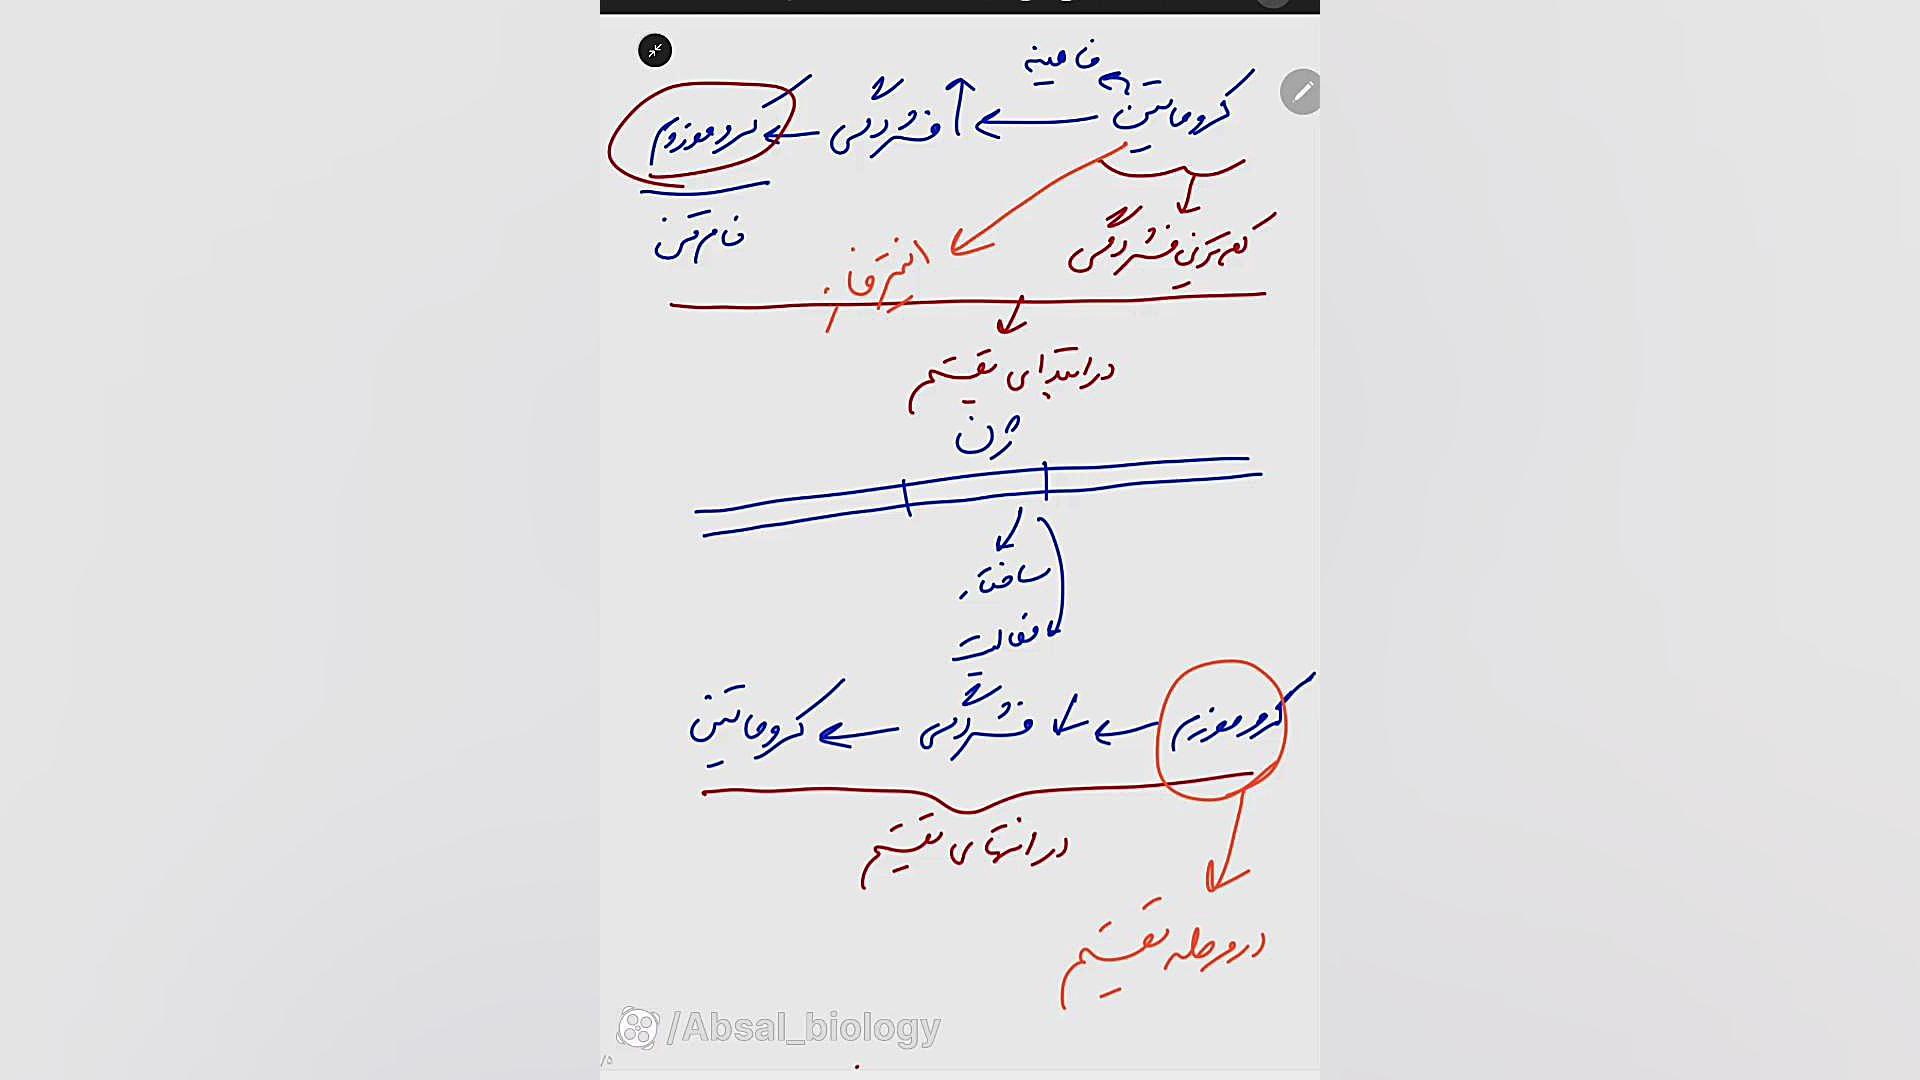 فامینه
کروماتین ← ↑ فشردگی ← کروموزوم
فام تن
کم ترین فشردگی
اینترفاز
در ابتدای تقسیم
ژن
ساختار
فعالیت
کروموزوم ← ↓ فشردگی ← کروماتین
در انتهای تقسیم
در مرحله تقسیم
/Absal_biology
/۵